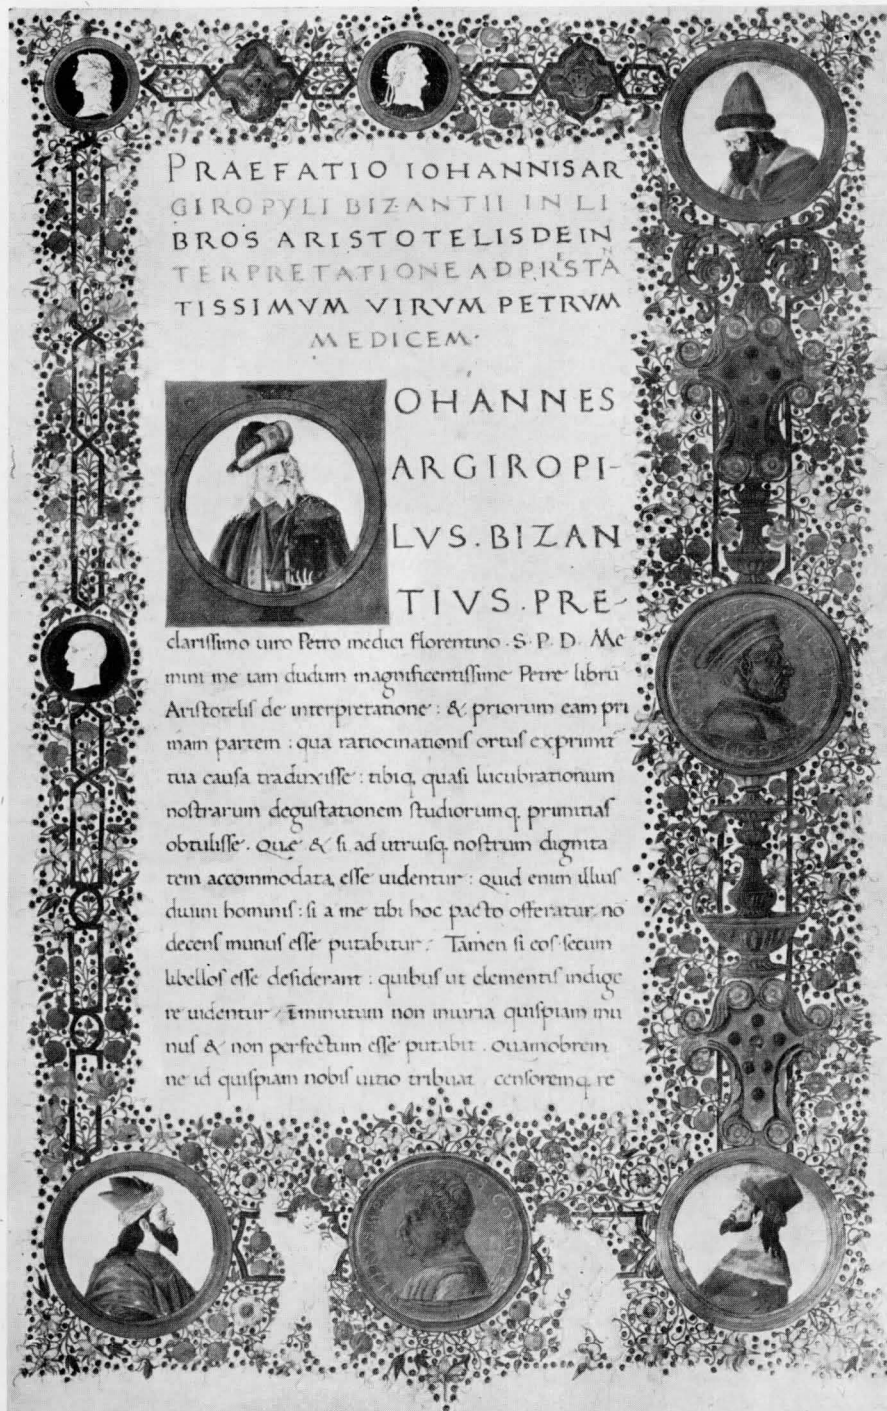 PRAEFATIO IOHANNIS AR
GIROPYLI BIZANTII IN LI
BROS ARISTOTELIS DE IN
TERPRETATIONE AD PRESTÃ
TISSIMVM VIRVM PETRVM
MEDICEM·
OHANNES
ARGIROPI-
LVS.BIZAN
TIVS.PRE-
clarissimo uiro Petro medici florentino. S. P. D. Me
mini me iam dudum magnificentissime Petre librũ
Aristotelis de interpretatione: & priorum eam pri
mam partem: qua ratiocinationis ortus exprimit̃
tua causa traduxisse: tibiq, quasi lucubrationum
nostrarum degustationem studiorumq, primitias
obtulisse. Que & si ad utriusq, nostrum dignita
tem accommodata, esse uidentur: quid enim illius
diuini hominis: si a me tibi hoc pacto offeratur no
decens munus esse putabitur: Tamen si eos secum
libellos esse desiderant: quibus ut elementis indige
re uidentur: Iminutum non iniuria quispiam mu
nus & non perfectum esse putabit. Quamobrem
ne id quispiam nobis uitio tribuat censoremq, re